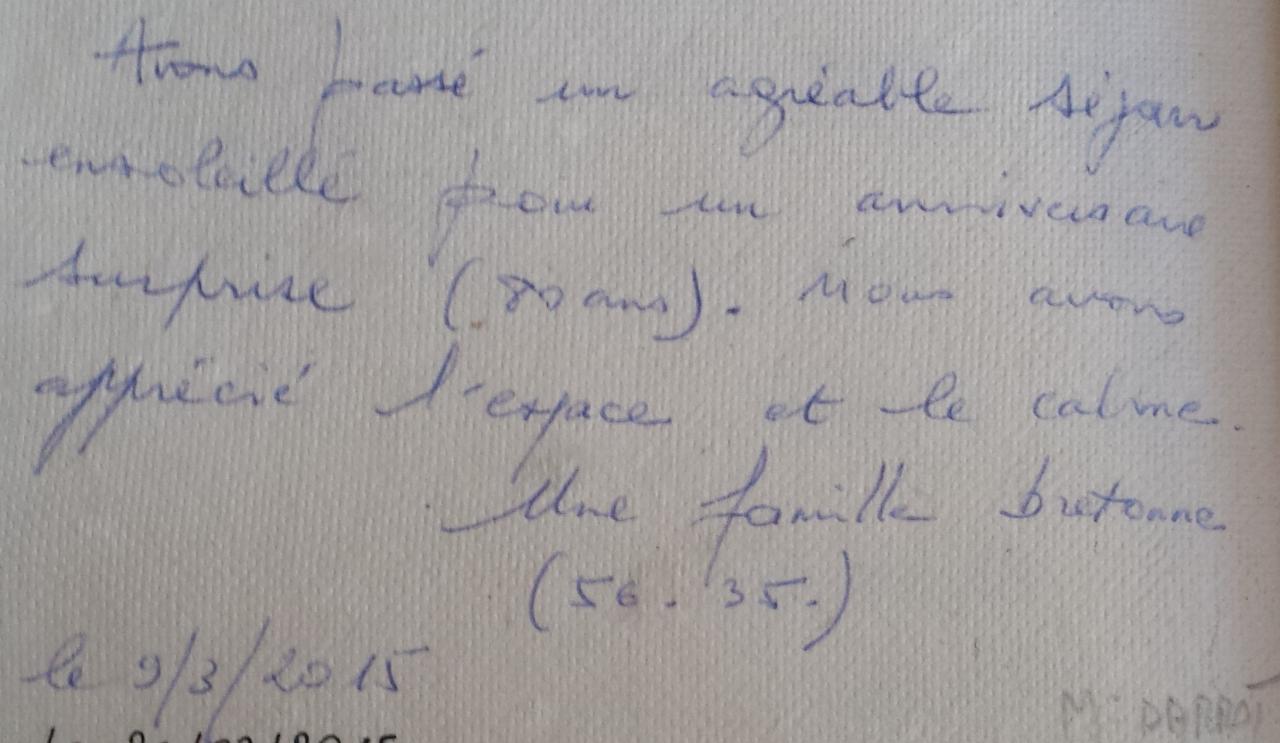 Avons passé un agréable séjour
ensoleillé pour un anniversaire
surprise (80 ans). Nous avons
apprécié l'espace et le calme.
Une famille bretonne
(56. 35.)
le 9/3/2015